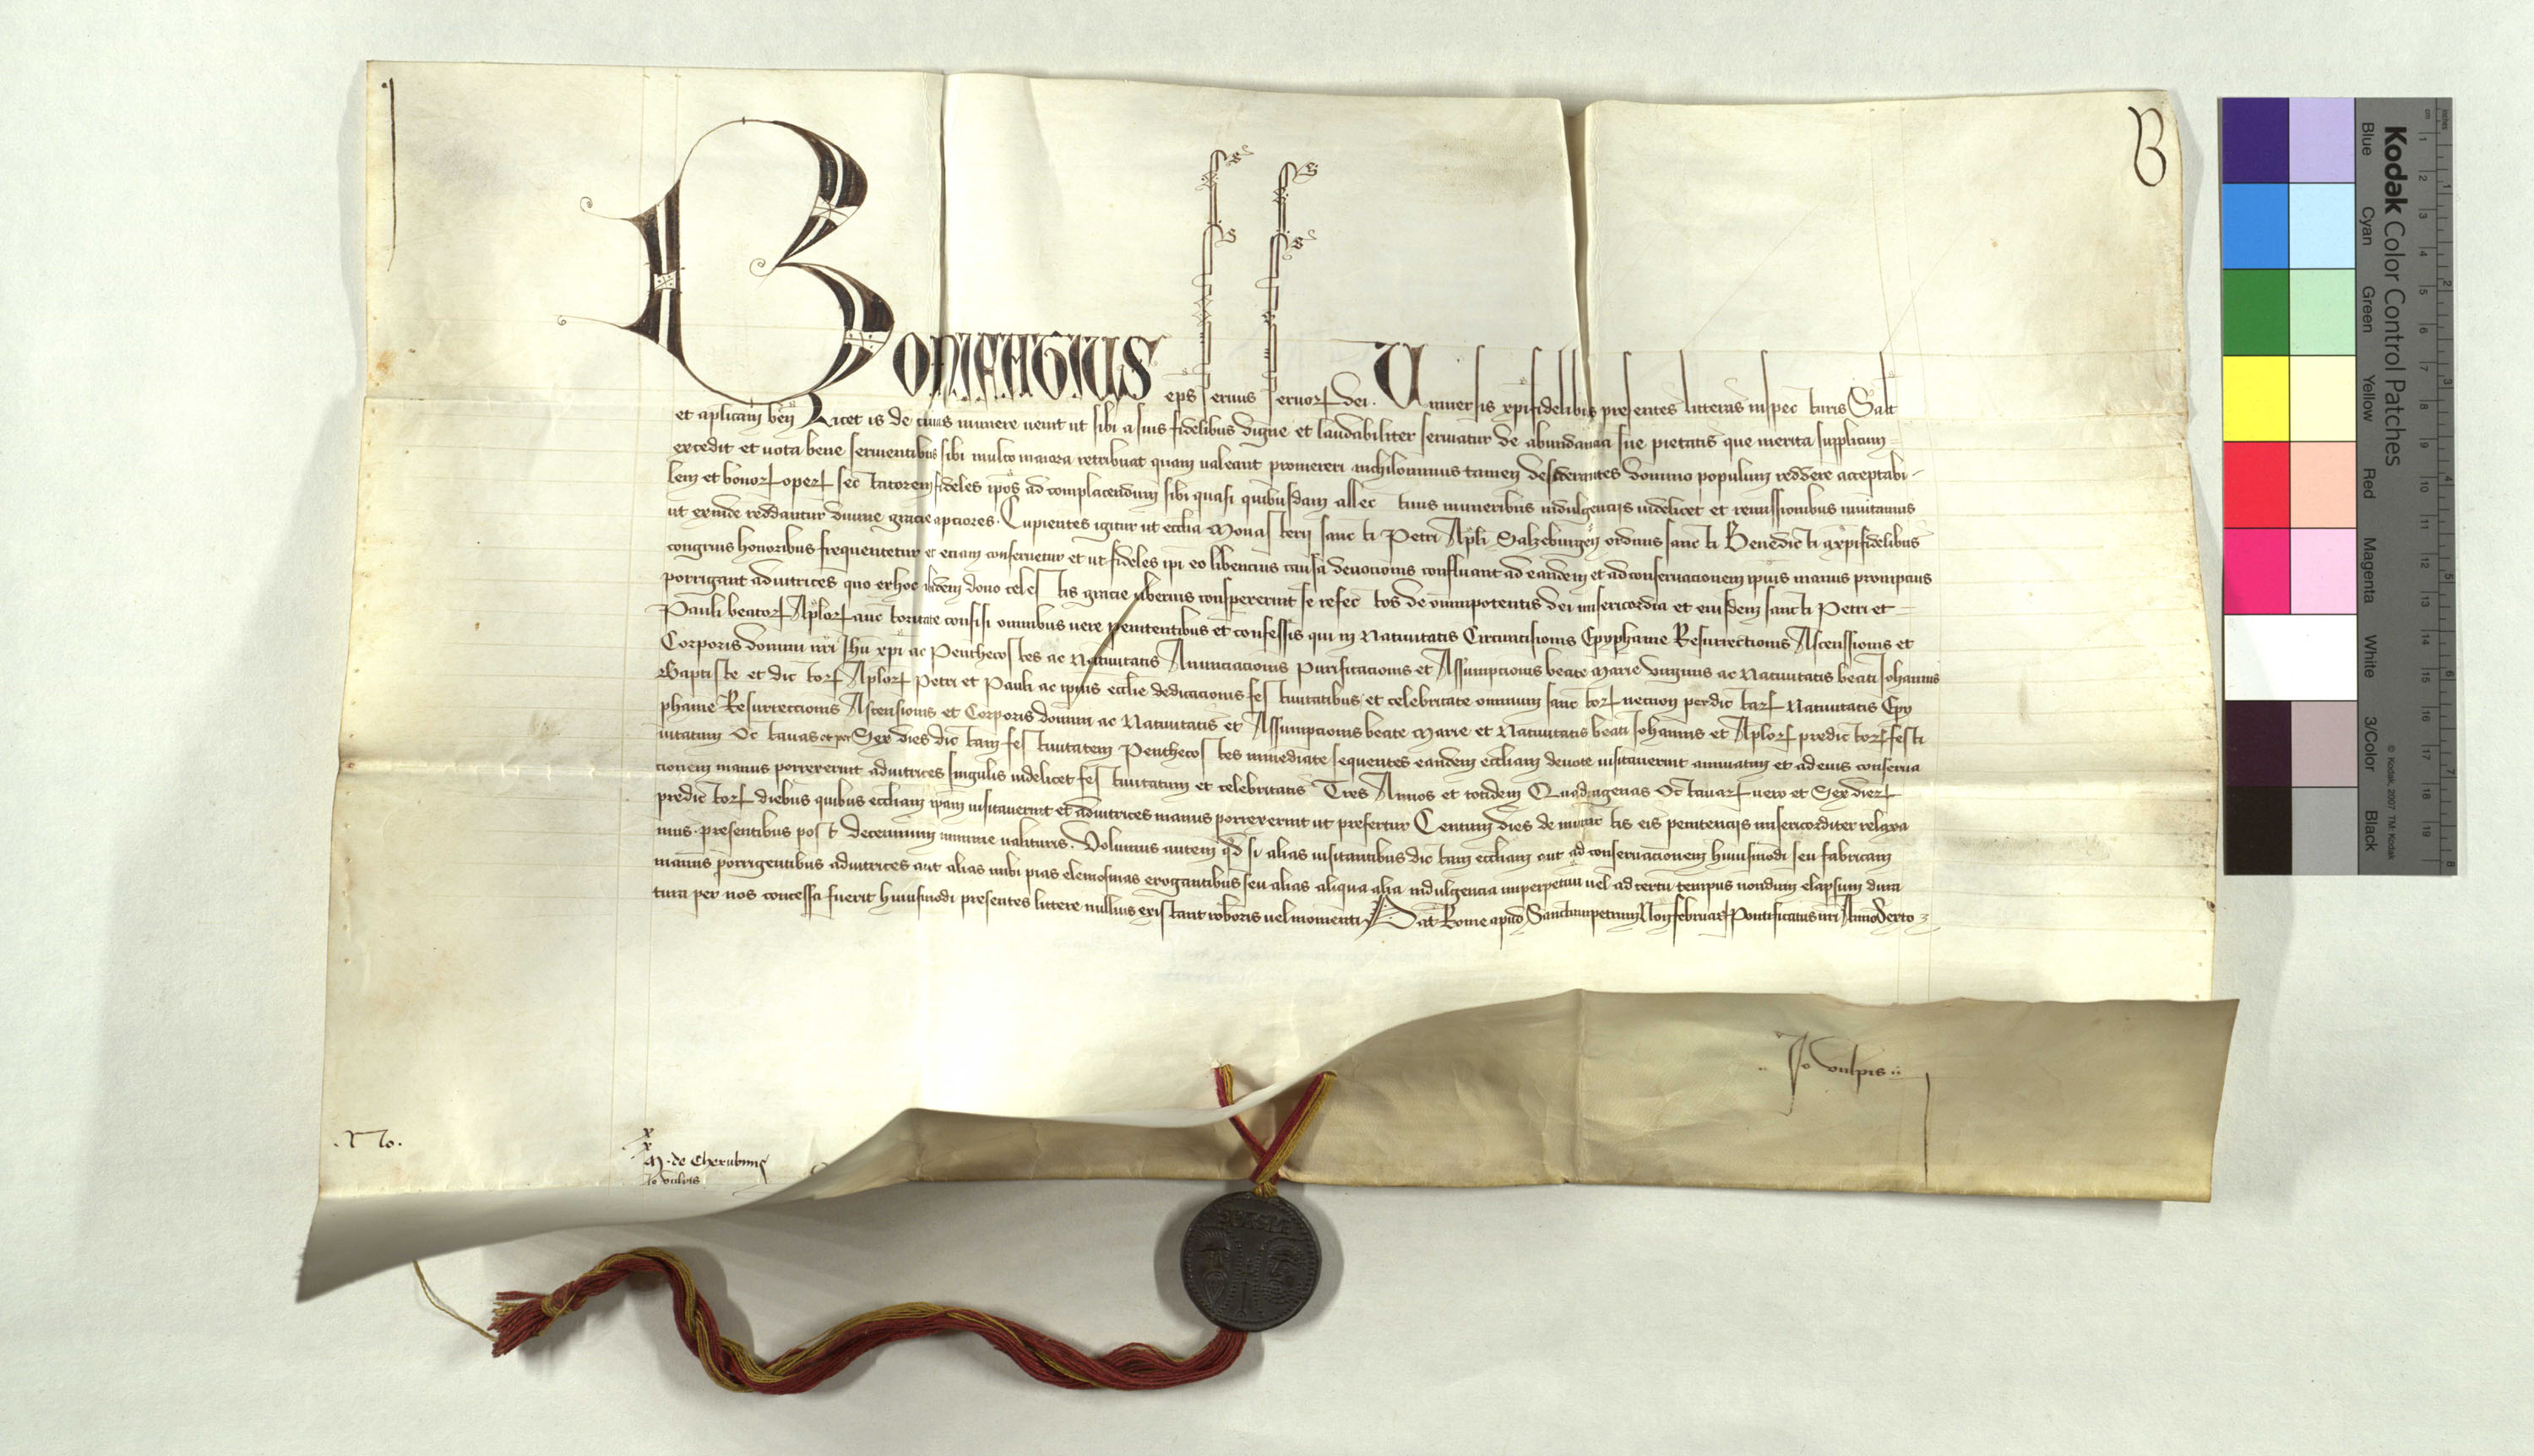 B
BONIFATIUS eps seruus seruorꝝ dei. Uniuersis xpifidelibus presentes litteras inspecturis Salt
et aplicam ben Licet is de cuius munere uenit ut sibi a suis fidelibus digne et laudabiliter seruiatur de abundantia sue pietatis que merita supplicum
excedit et uota bene seruientibus sibi multo maiora retribuat quam ualeant promereri nichilominus tamen desiderantes domino populum reddere acceptabi
lem et bonorꝝ operꝝ sectatorem fideles ipos ad complacendum sibi quasi quibusdam allectiuis muneribus indulgencijs uidelicet et remissionibus inuitamus
ut exinde reddantur diuine gracie apciores. Cupientes igitur ut ecclia Monasterij sancti Petri Apli Salzeburgen ordinis sancti Benedicti a xpifidelibus
congruis honoribus frequentetur et eciam conseruetur et ut fideles ipi eo libencius causa deuocionis confluant ad eandem et ad conseruacionem ipius manus prompcius
porrigant adiutrices quo ex hoc ibidem dono celestis gracie uberius conspexerint se refectos de omnipotentis dei misericordia et eiusdem sancti Petri et
Pauli beatorꝝ Aplorꝝ auctoritate confisi omnibus uere penitentibus et confessis qui in Natiuitatis Circuncisionis Epyphanie Resurrectionis Ascensionis et
Corporis domini nri Jhu xpi ac Penthecostes ac Natiuitatis Anunciacionis Purificacionis et Assumpcionis beate Marie uirginis ac Natiuitatis beati Johannis
Baptiste et dictorꝝ Aplorꝝ Petri et Pauli ac ipius ecclie dedicacionis festiuitatibus et celebritate omnium sanctorꝝ necnon per dictarꝝ Natiuitatis Epy
phanie Resurreccionis Ascensionis et Corporis domini ac Natiuitatis et Assumpcionis beate Marie et Natiuitatis beati Johannis et Aplorꝝ predictorꝝ festi
uitatum Octauas et per Sex dies dictam festiuitatem Penthecostes immediate sequentes eandem eccliam deuote uisitauerint annuatim et ad eius conserua
cionem manus porrexerint adiutrices singulis uidelicet festiuitatum et celebritatis Tres Annos et totidem Quadragenas Octauarꝝ uero et Sex dierꝝ
predictorꝝ diebus quibus eccliam ipam uisitauerint et adiutrices manus porrexerint ut prefertur Centum dies de iniunctis eis penitencijs misericorditer relaxa
mus. presentibus post decennium minime ualituris. Volumus autem qd si alias uisitantibus dictam eccliam aut ad conseruacionem huiusmodi seu fabricam
manus porrigentibus adiutrices aut alias inibi pias elemosinas erogantibus seu alias aliqua alia indulgencia imperpetuu uel ad certu tempus nondum elapsum dura
tura per nos concessa fuerit huiusmodi presentes littere nullius existant roboris uel momenti Dat Rome apud Sanctumpetrum Non februarꝝ Pontificatus nri Anno Sexto
Jo vulpis
No.
x
x
M. de Cherubinis
Jo vulpis
SPASPE
Kodak Color Control Patches
Blue Cyan Green Yellow Red Magenta White 3/Color Black
© Kodak, 2007 TM: Kodak
inches 1 2 3 4 5 6 7 8
cm 1 2 3 4 5 6 7 8 9 10 11 12 13 14 15 16 17 18 19